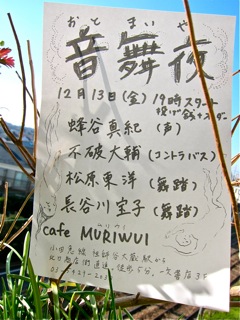 おとまいや
音舞夜
12月13日(金) 19時スタート
投げ銭+オーダー
蜂谷真紀 (声)
不破大輔 (コントラバス)
松原東洋 (舞踏)
長谷川宝子 (舞踏)
cafe MURIWUI
小田急線 祖師谷大蔵駅から
北口商店街直進、徒歩7分、